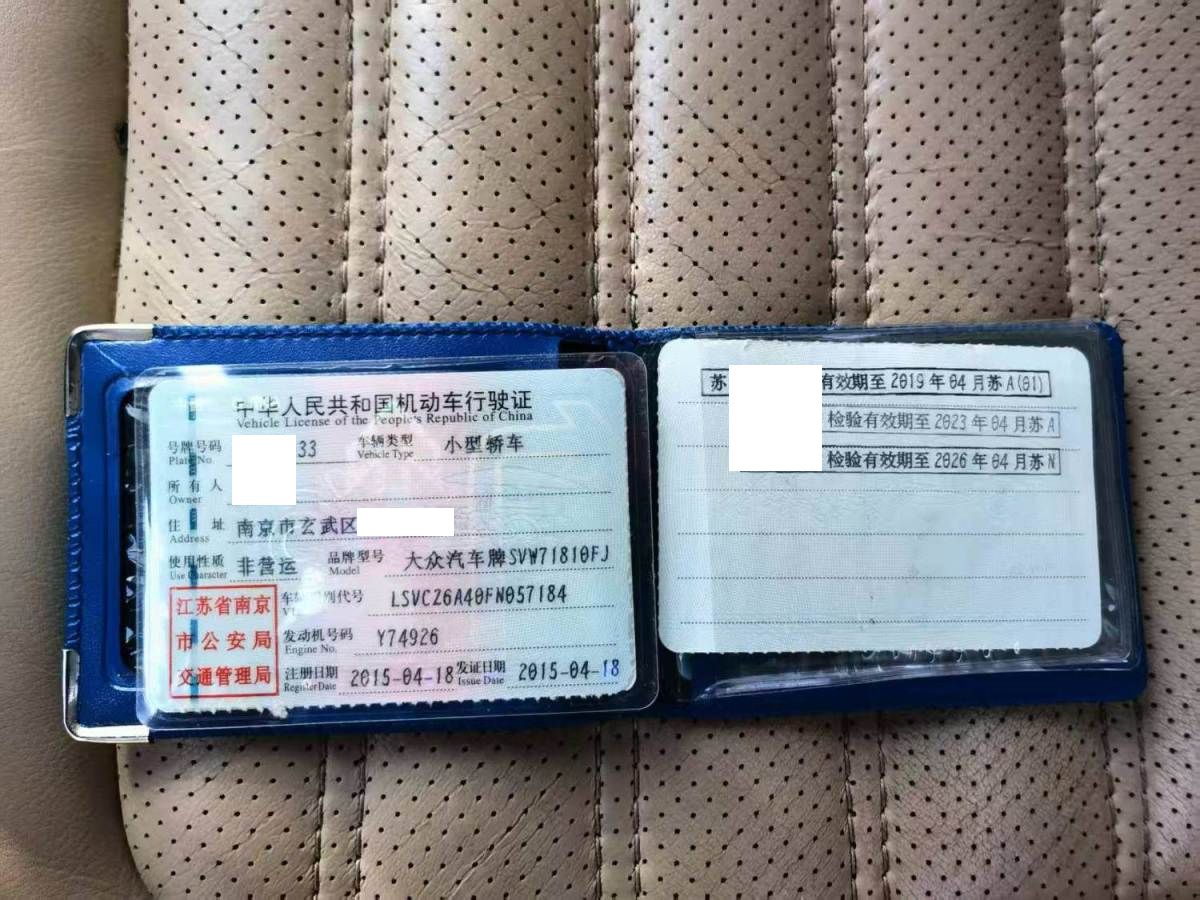 中华人民共和国机动车行驶证
Vehicle License of the People's Republic of China
号牌号码 33 车辆类型 小型轿车
Plate No. Vehicle Type
所有人
Owner
住址 南京市玄武区
Address
使用性质 非营运 品牌型号 大众汽车牌SVW71810FJ
Use Character Model
车辆识别代号 LSVCZ6A40FN057184
发动机号码 Y74926
Engine No.
注册日期 2015-04-18 发证日期 2015-04-18
Register Date Issue Date
江苏省南京
市公安局
交通管理局
苏 有效期至2019年04月苏A(01)
检验有效期至2023年04月苏A
检验有效期至2026年04月苏N